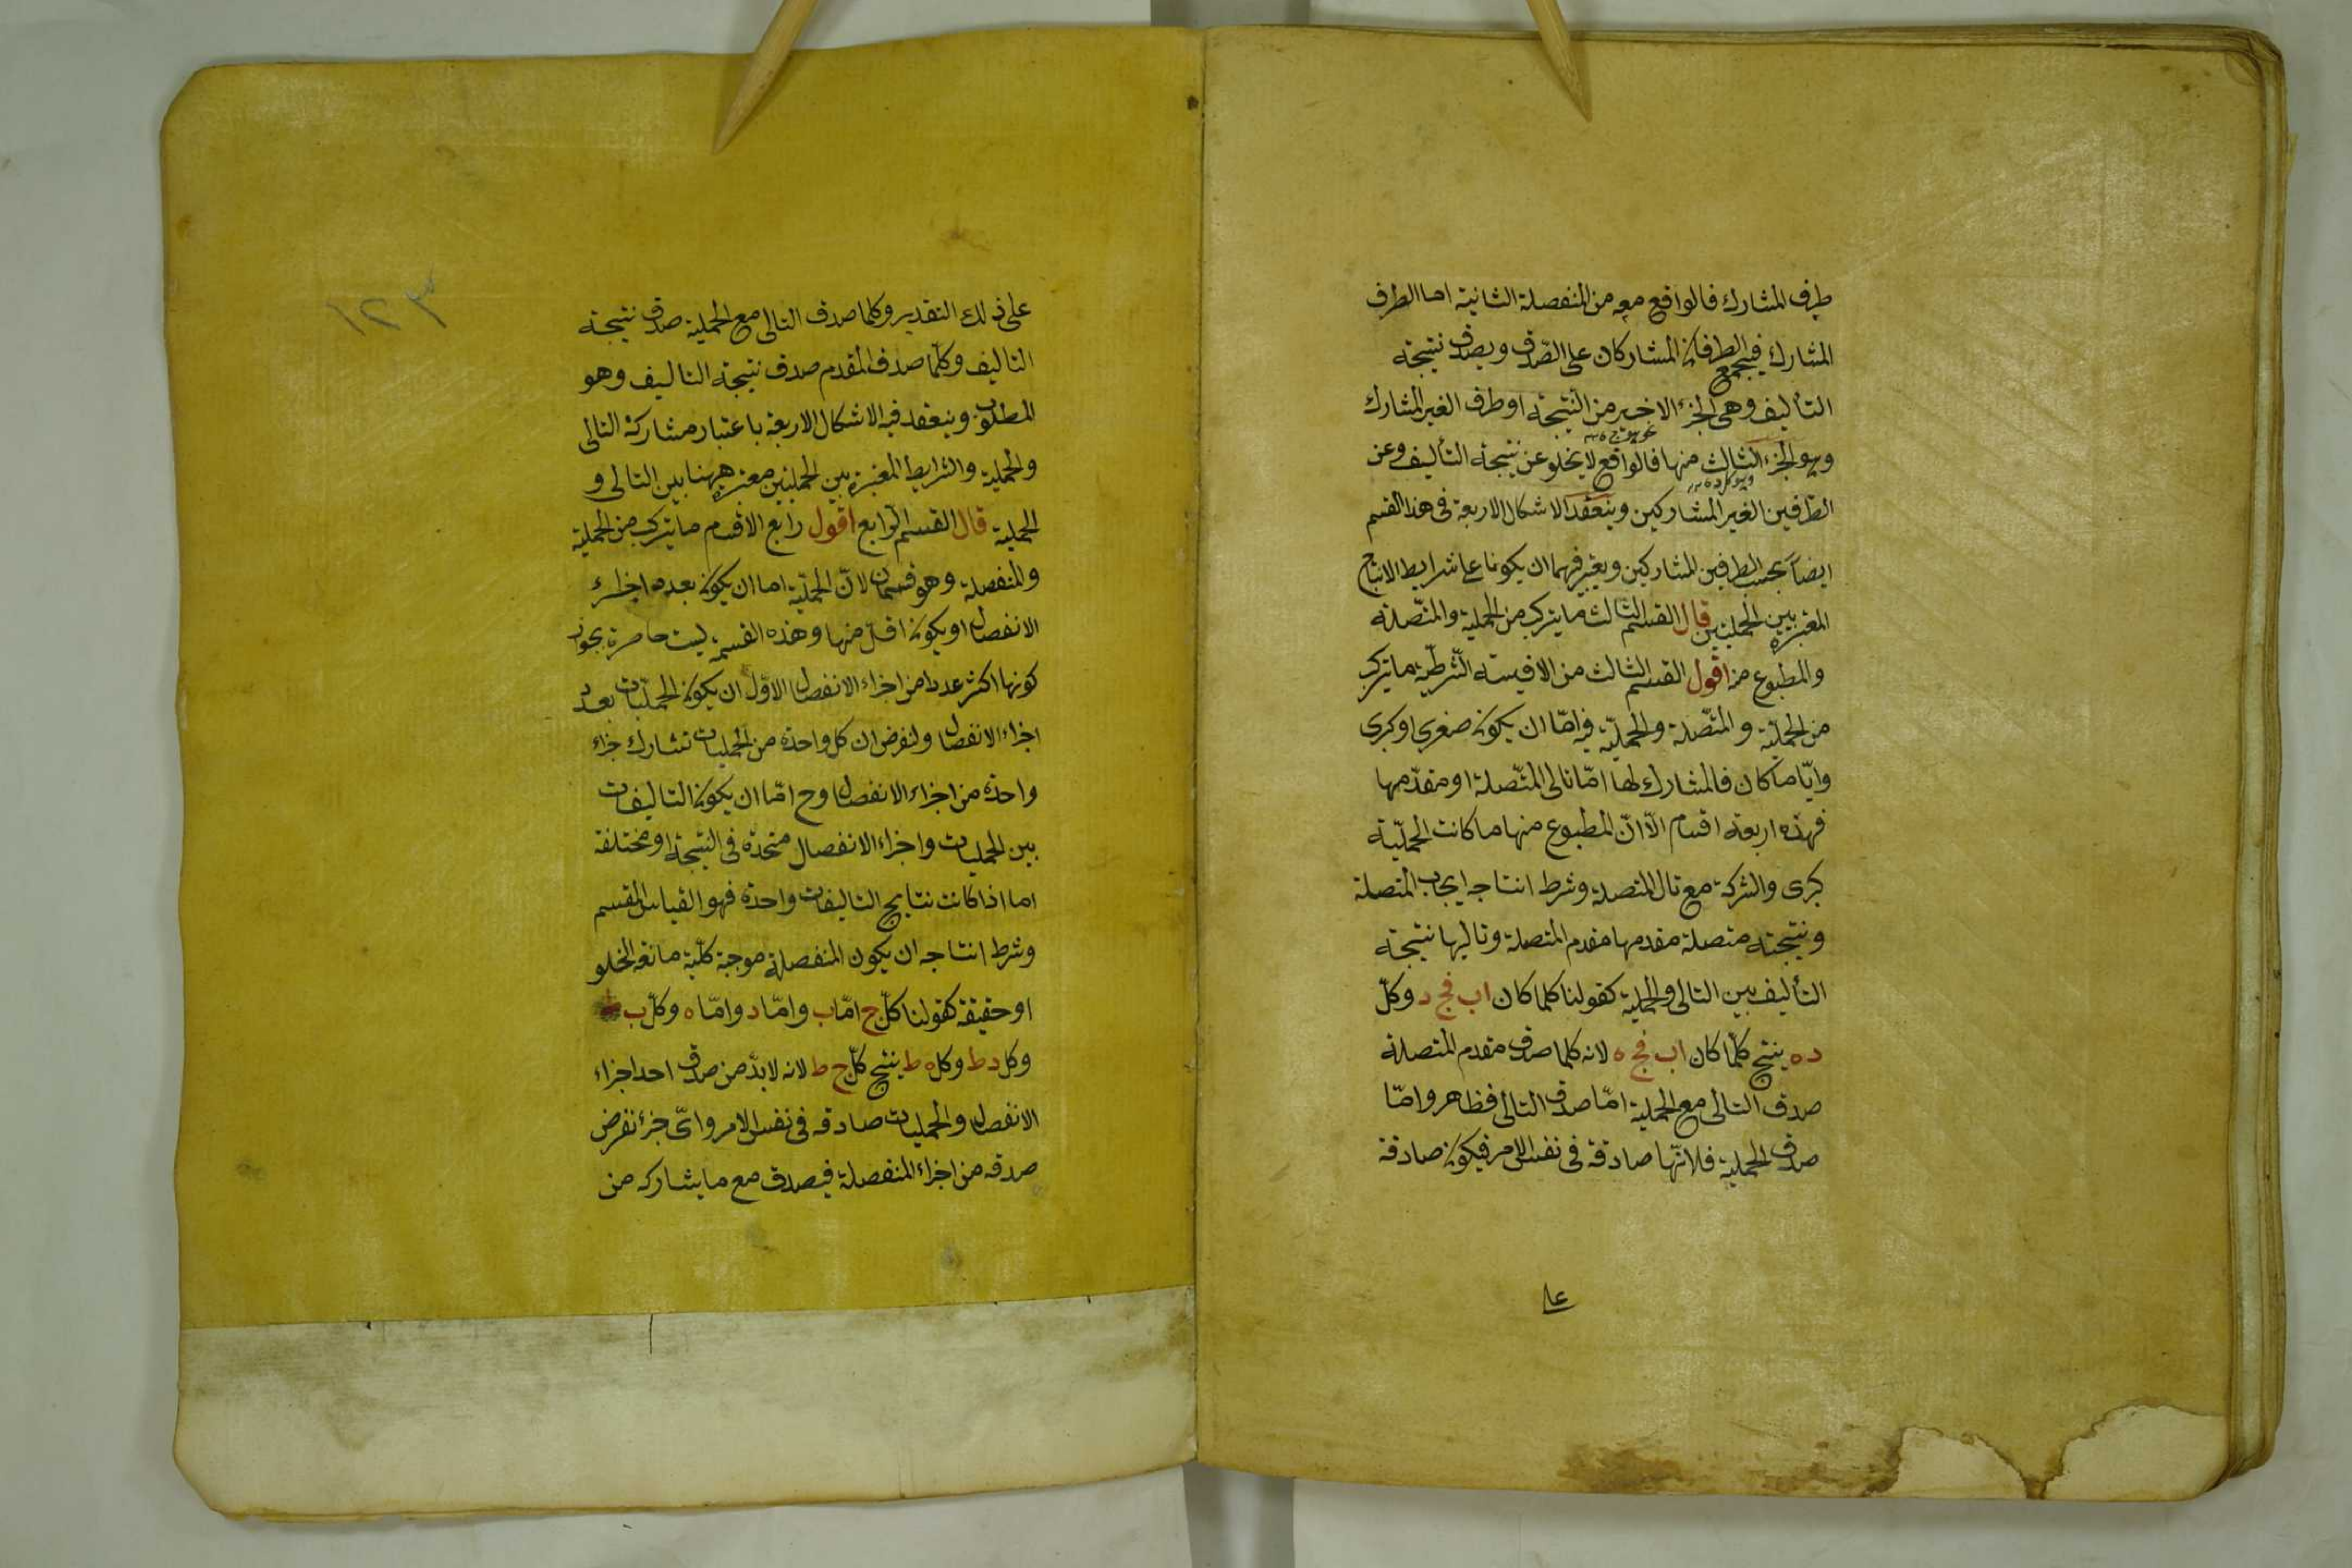 طرف المشارك فالواقع معه من المنفصلة الثانية اما الطرف
المشارك فيجتمع الطرفان المشاركان على الصّدق ويصدق نتيجة
التأليف وهى الجزء الاخير من النتيجة او طرف الغير المشارك
وهو الجزء الثالث منها فالواقع لا يخلو عن نتيجة التأليف وعن
الطرفين الغير المشاركين وينعقد الاشكال الاربعة فى هذا القسم
ايضاً بحسب الطرفين المشاركين ويعتبر فيهما ان يكونا على شرايط الانتاج
المعتبرة بين الحمليتين قال القسم الثالث ما يتركب من الحملية والمتّصلة
والمطبوع من اقول القسم الثالث من الاقيسة الشّرطيّة ما يتركب
من الحمليّة والمتّصلة والحمليّة فيه امّا ان يكون صغرى او كبرى
وايّا ما كان فالمشارك لها امّا تالى المتّصلة او مقدّمها
فهذه اربعة اقسام الّا انّ المطبوع منها ما كانت الحمليّة
كبرى والشركة مع تال المتصلة وشرط انتاجه ايجاب المتصلة
ونتيجته متصلة مقدمها مقدم المتصلة وتاليها نتيجة
التأليف بين التالى والحملية كقولنا كلما كان اب فج د وكلّ
د ه ينتج كلّما كان اب فج ه لانه كلما صدق مقدم المتصلة
صدق التالى مع الحملية امّا صدق التالى فظاهر وامّا
صدق الحملية فلانّها صادقة فى نفس الامر فيكون صادقة
على ذلك التقدير وكلما صدق التالى مع الحملية صدق نتيجة
التاليف وكلّما صدق المقدم صدق نتيجة التاليف وهو
المطلوب وينعقد فيه الاشكال الاربعة باعتبار مشاركة التالى
والحملية والشرايط المعتبرة بين الحمليتين معتبرة ههنا بين التالى و
الحملية قال القسم الرابع اقول رابع الاقسام ما يتركب من الحملية
والمنفصلة وهو قسمان لانّ الحمليّة اما ان يكون بعدد اجزاء
الانفصال او يكون اقلّ منها وهذه القسمة ليست حاصرة بجواز
كونها اكثر عددا من اجزاء الانفصال الاوّل ان يكون الحمليّات بعدد
اجزاء الانفصال ولنفرض ان كل واحدة من الحمليات تشارك جزاء
واحدة من اجزاء الانفصال وح امّا ان يكون التاليفات
بين الحمليات واجزاء الانفصال متحدة فى النتيجة او مختلفة
اما اذا كانت نتايج التاليفات واحدة فهو القياس المقسم
وشرط انتاجه ان يكون المنفصلة موجبة كلّية مانعة الخلو
او حقيقة كقولنا كلّ ج امّا ب وامّا د وامّا ه وكلّ ب
وكل د ط وكل ه ط ينتج كلّ ج ط لانه لا بدّ من صدق احد اجزاء
الانفصال والحمليات صادقه فى نفس الامر واىّ جزء نفرض
صدقه من اجزاء المنفصلة فيصدق مع ما يشاركه من